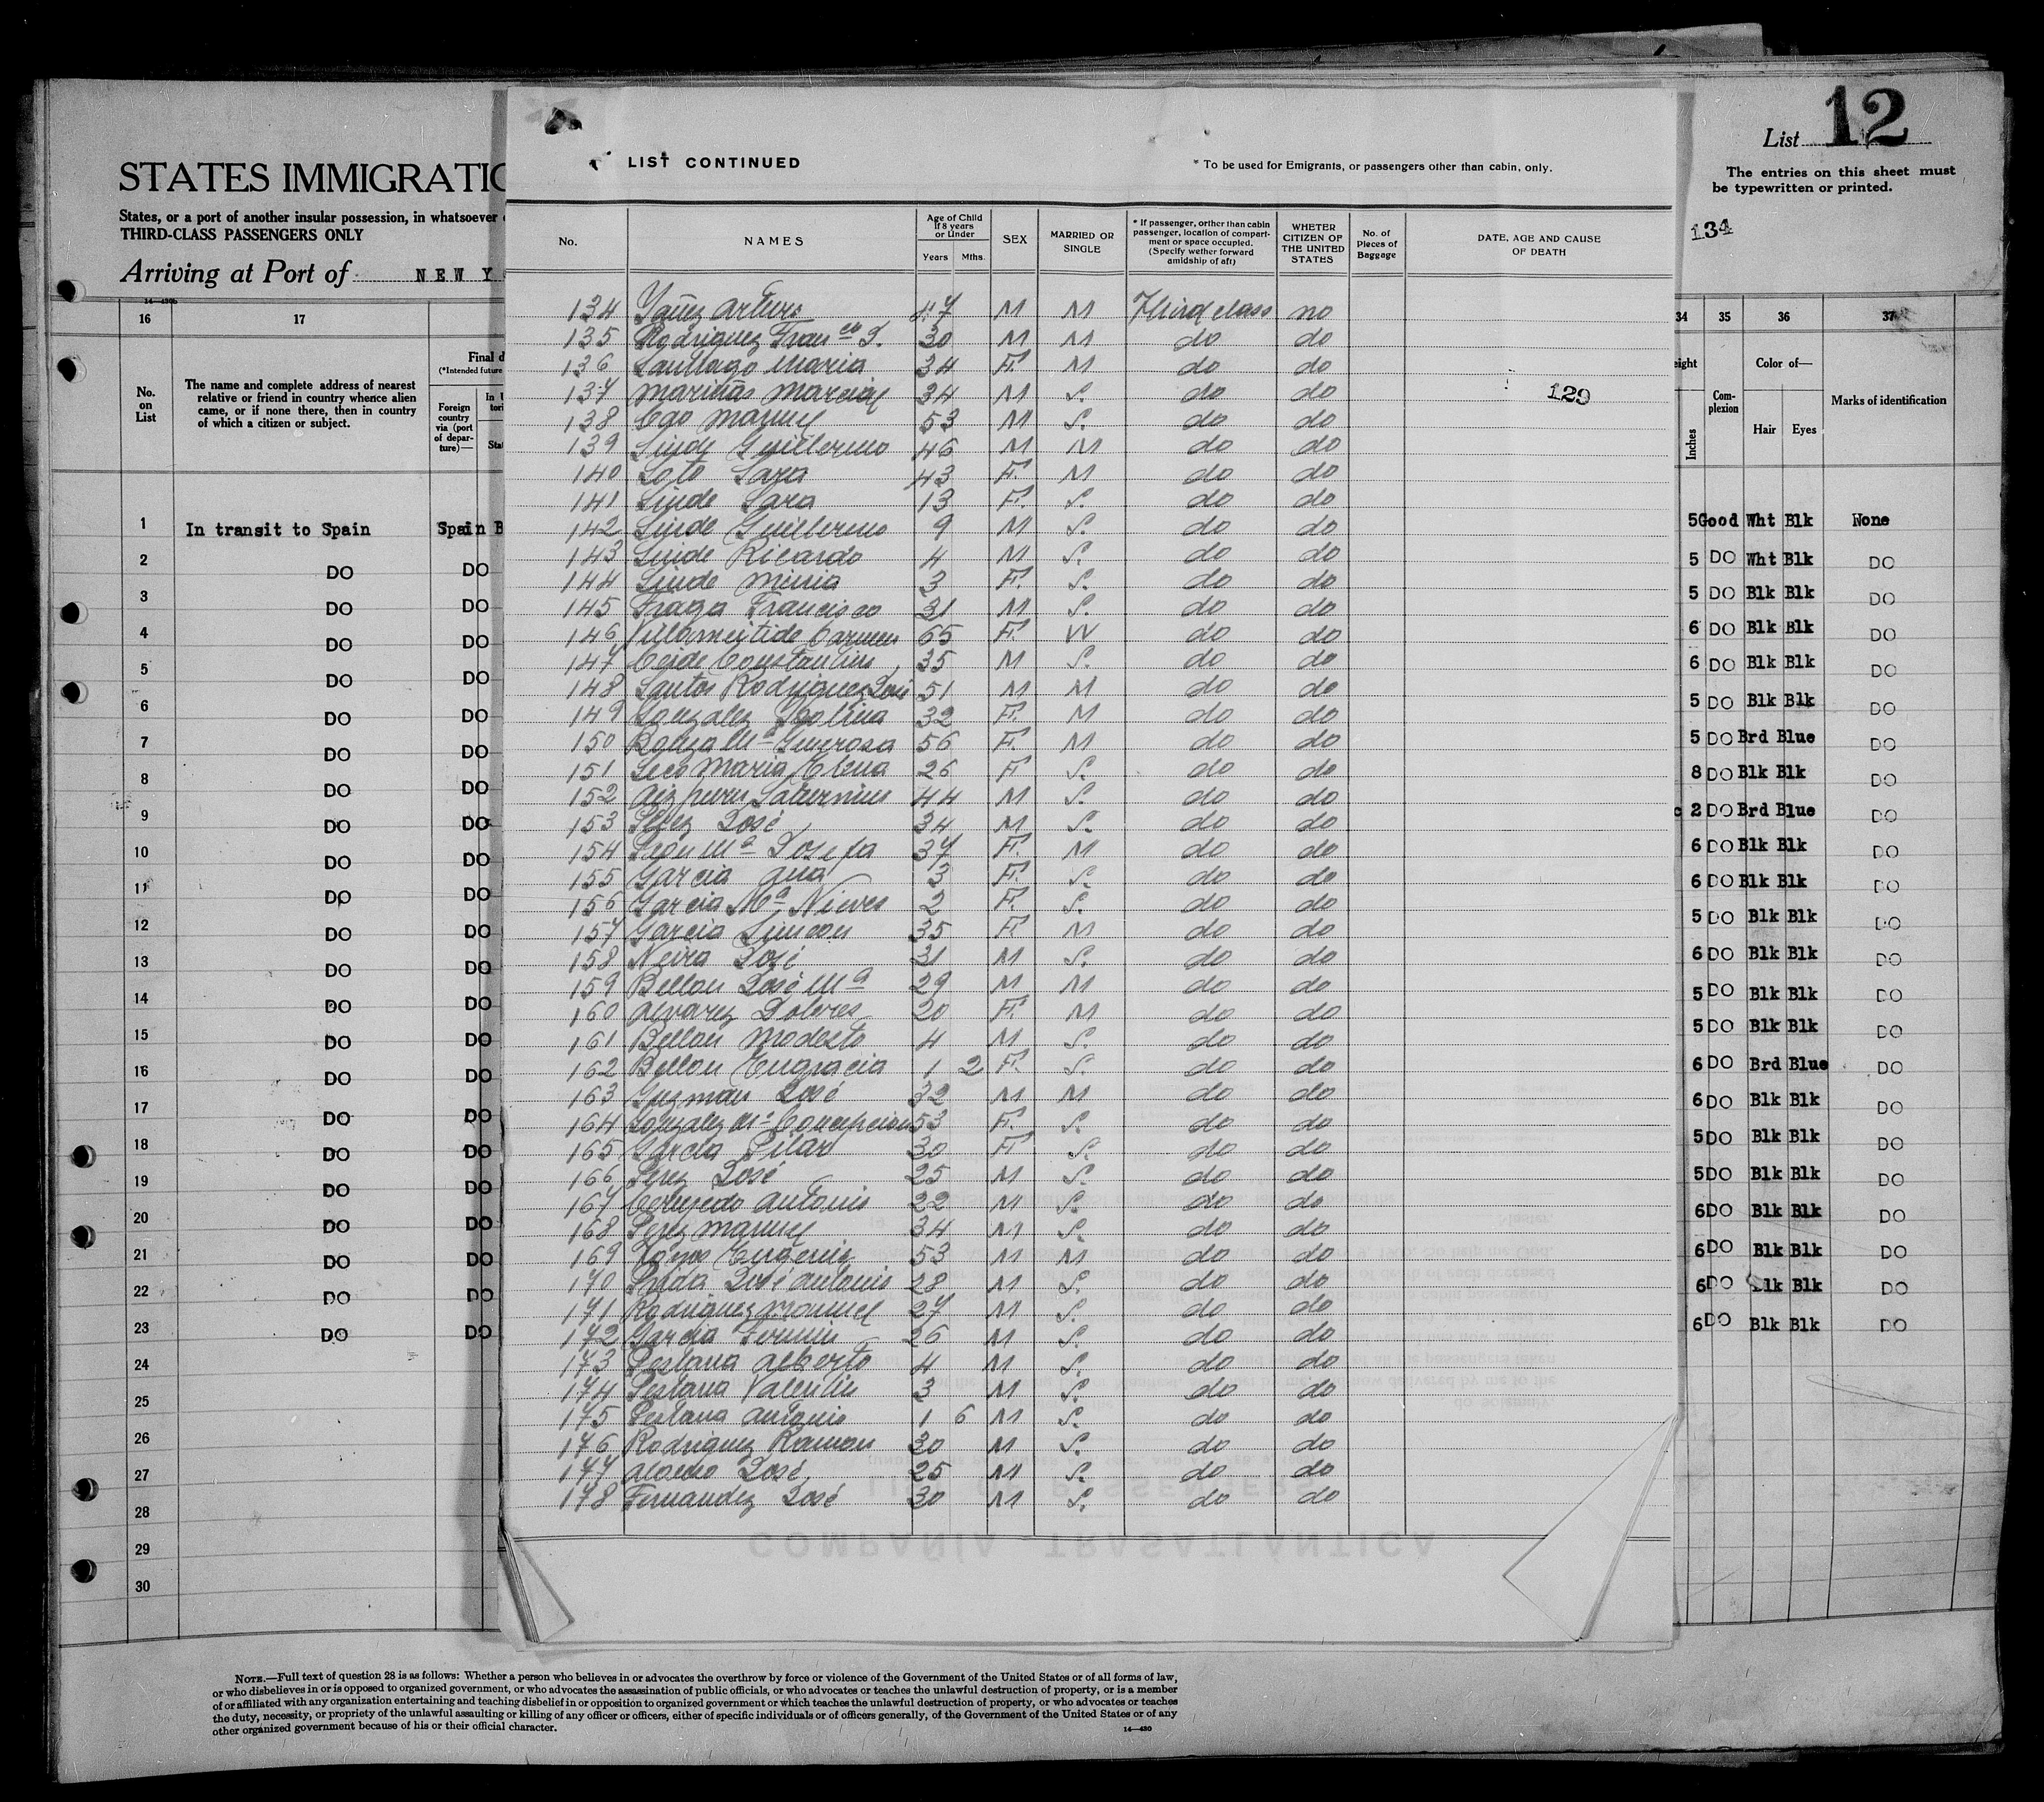 List 12
The entries on this sheet must
be typewritten or printed.
134
STATES IMMIGRATIO
States, or a port of another insular possession, in whatsoever
THIRD-CLASS PASSENGERS ONLY
Arriving at Port of NEW Y
LIST CONTINUED
* To be used for Emigrants, or passengers other than cabin, only.
No.
NAMES
Age of Child
If 8 years
or Under
Years Mths.
SEX
MARRIED OR
SINGLE
* If passenger, orther than cabin
passenger, location of compart-
ment or space occupied.
(Specify wether forward
amidship of aft)
WHETER
CITIZEN OF
THE UNITED
STATES
No. of
Pieces of
Baggage
DATE, AGE AND CAUSE
OF DEATH
129
134 Yañez Arturo 47 M M Third class no
135 Rodriguez Fran co J. 30 M M do do
136 Santiago Maria 34 F. M do do
137 Mariñas Marcial 34 M S. do do
138 Ego Manuel 53 M S. do do
139 Sinde Guillermo 46 M M do do
140 Soto Sara 43 F. M do do
141 Sinde Sara 13 F. S. do do
142 Sinde Guillermo 9 M S. do do
143 Sinde Ricardo 4 M S. do do
144 Sinde Minia 3 F. S. do do
145 Fraga Francisco 31 M S. do do
146 Villameitide Carmen 65 F. W do do
147 Ceide Constantino 35 M S. do do
148 Santos Rodriguez José 51 M M do do
149 Gonzalez 32 F. M do do
150 Mª Generosa 56 F. M do do
151 Seco Maria Elena 26 F S. do do
152 Aizpuru Saturnino 44 M S. do do
153 Perez José 34 M S. do do
154 Mª Josefa 37 F. M do do
155 Garcia Ana 3 F. S. do do
156 Garcia Mª Nieves 2 F. S. do do
157 Garcia Simeon 35 F M do do
158 Neira José 31 M S. do do
159 Bellon José Mª 29 M M do do
160 Alvarez Dolores 20 F. M do do
161 Bellon Modesto 4 M S. do do
162 Bellon Engracia 1 2 F. S. do do
163 Guzman José 32 M M do do
164 Gonzalez Mª Concepcion 53 F. S. do do
165 Garcia Pilar 30 F S. do do
166 Perez José 25 M S. do do
167 Antonio 22 M S. do do
168 Perez Manuel 34 M S. do do
169 Eugenio 53 M M do do
170 José Antonio 28 M S. do do
171 Rodriguez Manuel 27 M S. do do
172 Garcia Fermin 26 M S. do do
173 Pestana Alberto 4 M S. do do
174 Pestana Valentin 3 M S. do do
175 Pestana Antonio 1 6 M S. do do
176 Rodriguez Ramon 30 M S. do do
177 Alonso José 25 M S. do do
178 Fernandez José 30 M S. do do
COMPAÑIA TRASATLANTICA
14-430b
16 17
No.
on
List
The name and complete address of nearest
relative or friend in country whence alien
came, or if none there, then in country
of which a citizen or subject.
Final d
(*Intended future
Foreign
country
via (port
of depar-
ture)—
In U
tori
Stat
34 35 36 37
eight
Inches
Com-
plexion
Color of—
Hair Eyes
Marks of identification
1 In transit to Spain Spain B 5 Good Wht Blk None
2 DO DO 5 DO Wht Blk DO
3 DO DO 5 DO Blk Blk DO
4 DO DO 6 DO Blk Blk DO
5 DO DO 6 DO Blk Blk DO
6 DO DO 5 DO Blk Blk DO
7 DO DO 5 DO Brd Blue DO
8 DO DO 8 DO Blk Blk DO
9 DO DO 2 DO Brd Blue DO
10 DO DO 6 DO Blk Blk DO
11 DO DO 6 DO Blk Blk DO
12 DO DO 5 DO Blk Blk DO
13 DO DO 6 DO Blk Blk DO
14 DO DO 5 DO Blk Blk DO
15 DO DO 5 DO Blk Blk DO
16 DO DO 6 DO Brd Blue DO
17 DO DO 6 DO Blk Blk DO
18 DO DO 5 DO Blk Blk DO
19 DO DO 5 DO Blk Blk DO
20 DO DO 6 DO Blk Blk DO
21 DO DO 6 DO Blk Blk DO
22 DO DO 6 DO Blk Blk DO
23 DO DO 6 DO Blk Blk DO
24
25
26
27
28
29
30
NOTE.—Full text of question 28 is as follows: Whether a person who believes in or advocates the overthrow by force or violence of the Government of the United States or of all forms of law,
or who disbelieves in or is opposed to organized government, or who advocates the assassination of public officials, or who advocates or teaches the unlawful destruction of property, or is a member
of or affiliated with any organization entertaining and teaching disbelief in or opposition to organized government or which teaches the unlawful destruction of property, or who advocates or teaches
the duty, necessity, or propriety of the unlawful assaulting or killing of any officer or officers, either of specific individuals or of officers generally, of the Government of the United States or of any
other organized government because of his or their official character.
14—430